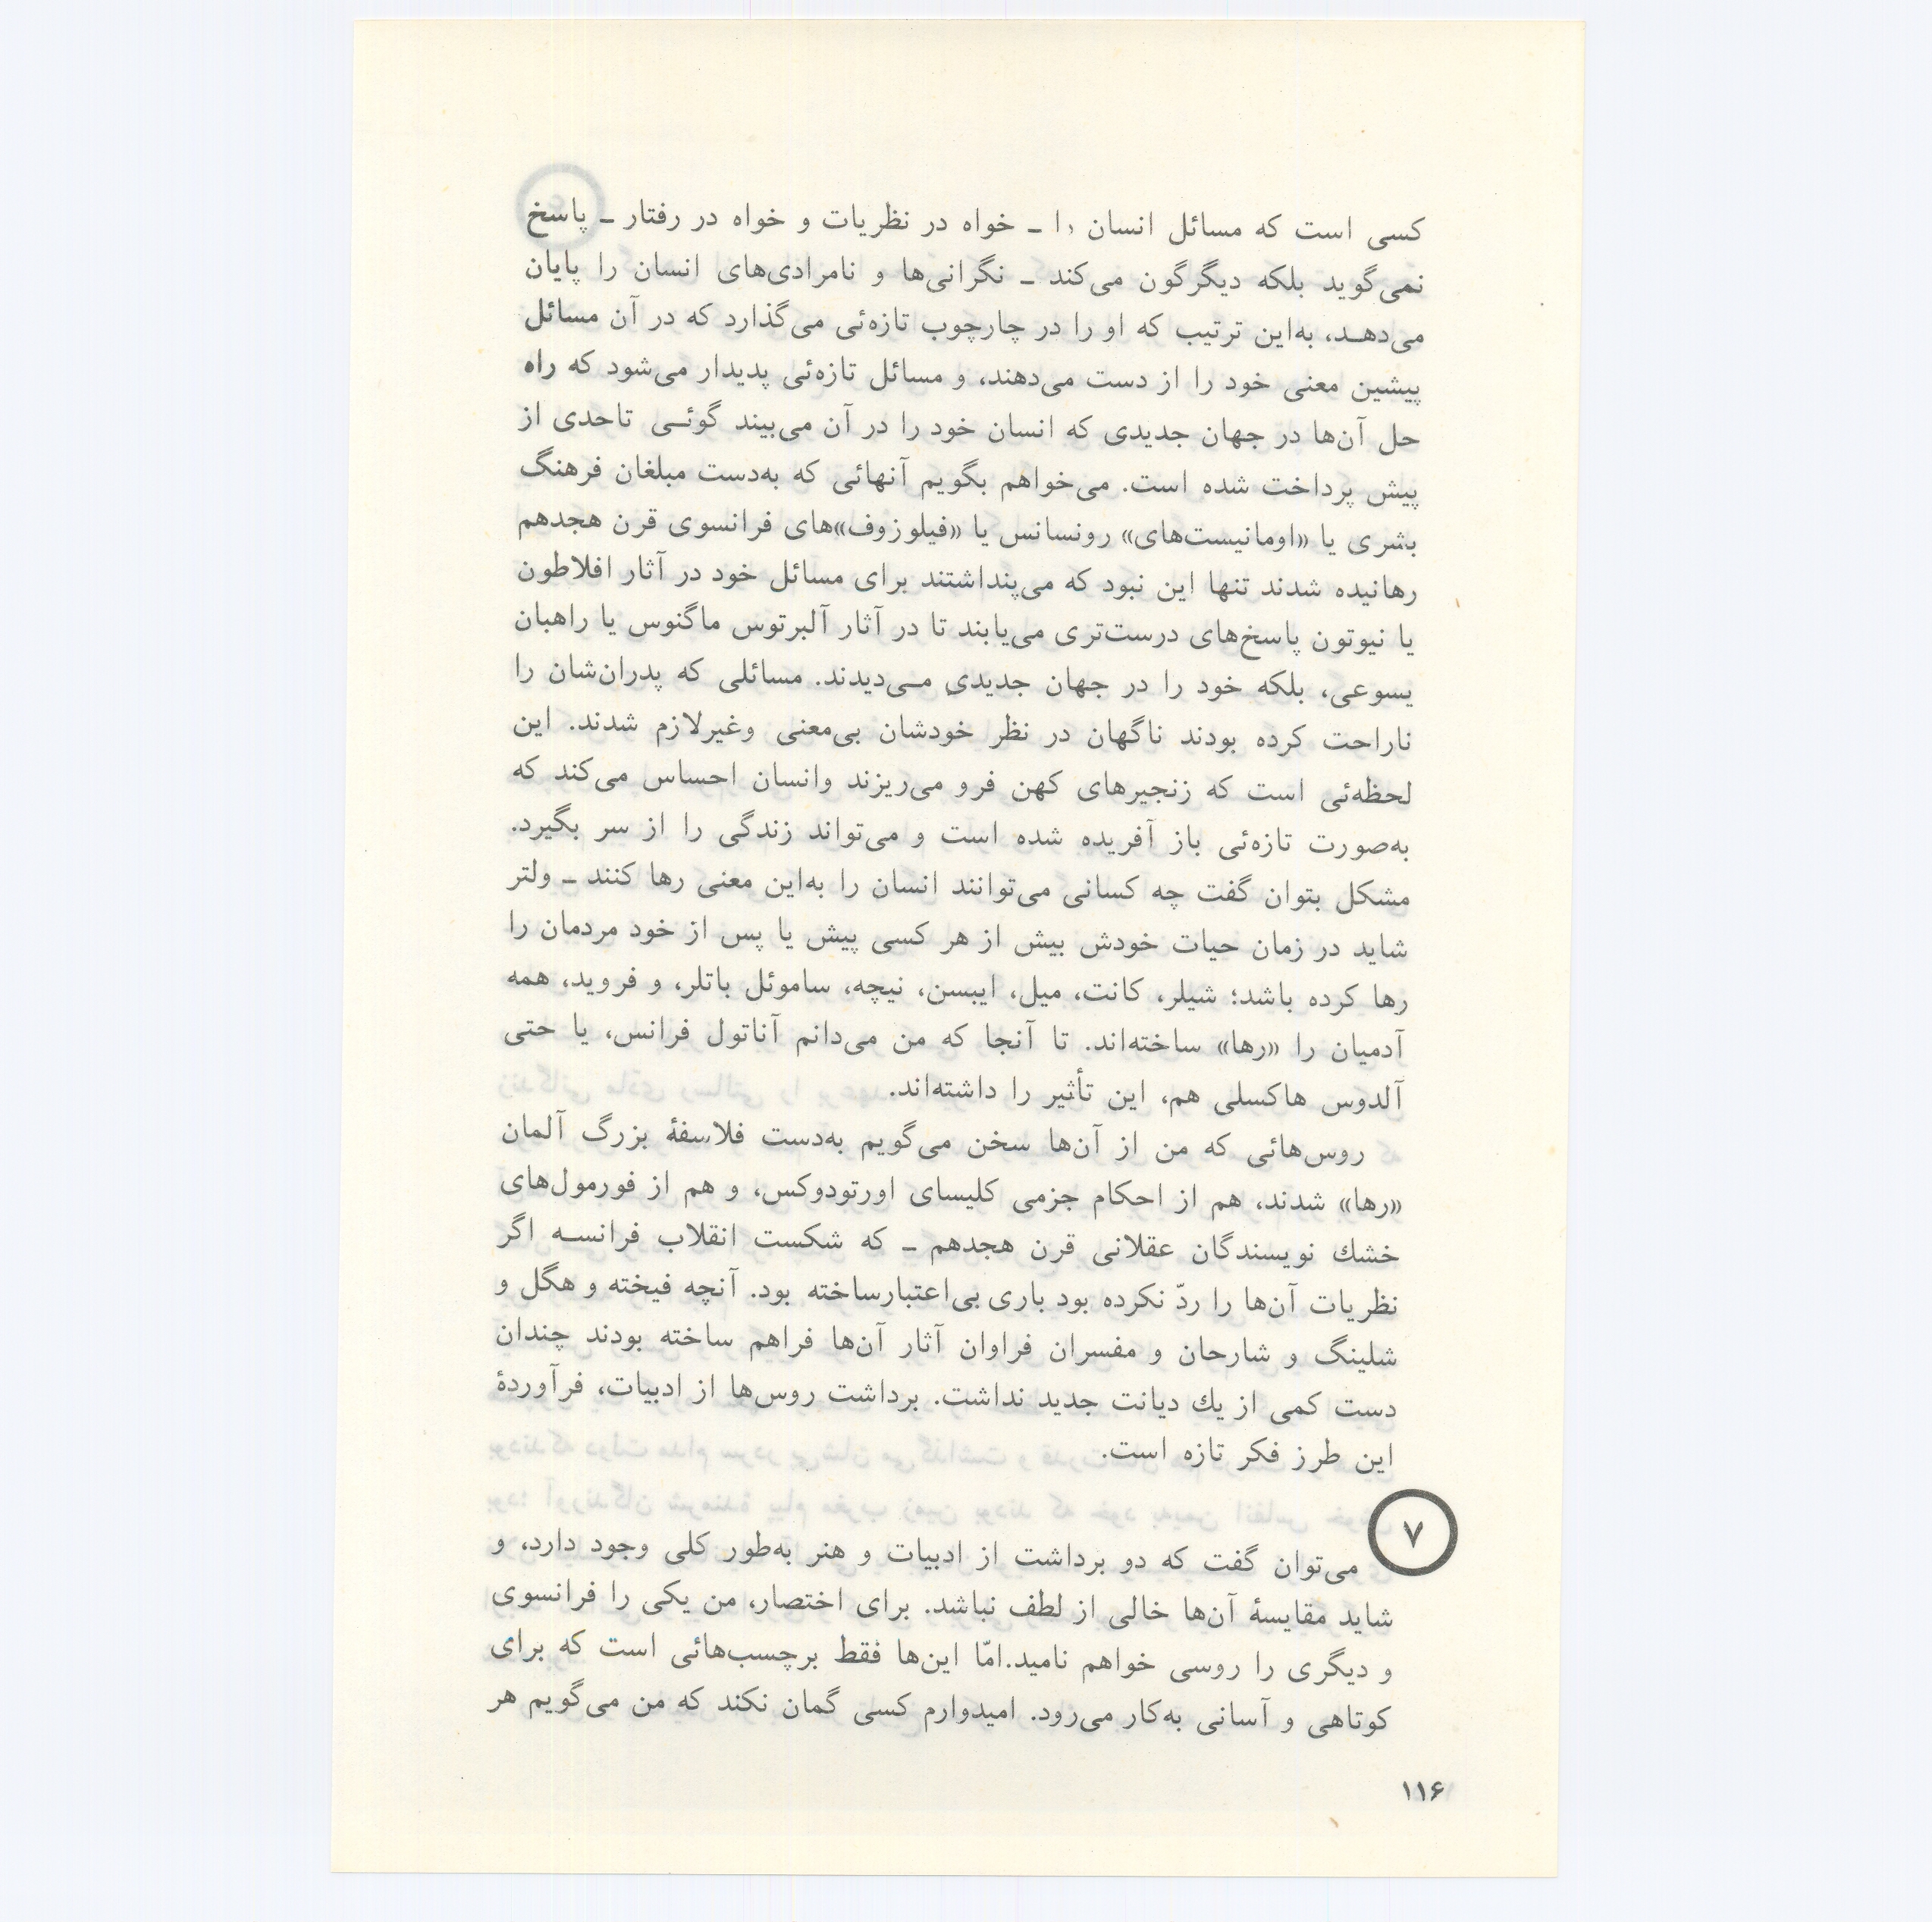 کسی است که مسائل انسان را ـ خواه در نظریات و خواه در رفتار ـ پاسخ
نمی‌گوید بلکه دیگرگون می‌کند ـ نگرانی‌ها و نامرادی‌های انسان را پایان
می‌دهـد، به‌این ترتیب که او را در چارچوب تازه‌ئی می‌گذارد که در آن مسائل
پیشین معنی خود را از دست می‌دهند، و مسائل تازه‌ئی پدیدار می‌شود که راه
حل آن‌ها در جهان جدیدی که انسان خود را در آن می‌بیند گوئـی تاحدی از
پیش پرداخت شده است. می‌خواهم بگویم آنهائی که به‌دست مبلغان فرهنگ
بشری یا «اومانیست‌های» رونسانس یا «فیلوزوف»های فرانسوی قرن هجدهم
رهانیده شدند تنها این نبود که می‌پنداشتند برای مسائل خود در آثار افلاطون
یا نیوتون پاسخ‌های درست‌تری می‌یابند تا در آثار آلبرتوس ماگنوس یا راهبان
یسوعی، بلکه خود را در جهان جدیدی مـی‌دیدند. مسائلی که پدران‌شان را
ناراحت کرده بودند ناگهان در نظر خودشان بی‌معنی وغیرلازم شدند. این
لحظه‌ئی است که زنجیرهای کهن فرو می‌ریزند وانسان احساس می‌کند که
به‌صورت تازه‌ئی باز آفریده شده است و می‌تواند زندگی را از سر بگیرد.
مشکل بتوان گفت چه کسانی می‌توانند انسان را به‌این معنی رها کنند ـ ولتر
شاید در زمان حیات خودش بیش از هر کسی پیش یا پس از خود مردمان را
رها کرده باشد؛ شیلر، کانت، میل، ایبسن، نیچه، ساموئل باتلر، و فروید، همه
آدمیان را «رها» ساخته‌اند. تا آنجا که من می‌دانم آناتول فرانس، یا حتی
آلدوس هاکسلی هم، این تأثیر را داشته‌اند.
روس‌هائی که من از آن‌ها سخن می‌گویم به‌دست فلاسفهٔ بزرگ آلمان
«رها» شدند، هم از احکام جزمی کلیسای اورتودوکس، و هم از فورمول‌های
خشك نویسندگان عقلانی قرن هجدهم ـ که شکست انقلاب فرانسـه اگر
نظریات آن‌ها را ردّ نکرده بود باری بی‌اعتبارساخته بود. آنچه فیخته و هگل و
شلینگ و شارحان و مفسران فراوان آثار آن‌ها فراهم ساخته بودند چندان
دست کمی از یك دیانت جدید نداشت. برداشت روس‌ها از ادبیات، فرآوردهٔ
این طرز فکر تازه است.
۷
می‌توان گفت که دو برداشت از ادبیات و هنر به‌طور کلی وجود دارد، و
شاید مقایسهٔ آن‌ها خالی از لطف نباشد. برای اختصار، من یکی را فرانسوی
و دیگری را روسی خواهم نامید.امّا این‌ها فقط برچسب‌هائی است که برای
کوتاهی و آسانی به‌کار می‌رود. امیدوارم کسی گمان نکند که من می‌گویم هر
۱۱۶